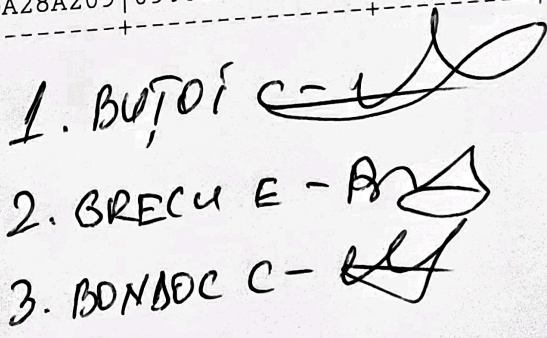 1. BUȚOI C -
2. GRECU E -
3. BONDOC C -